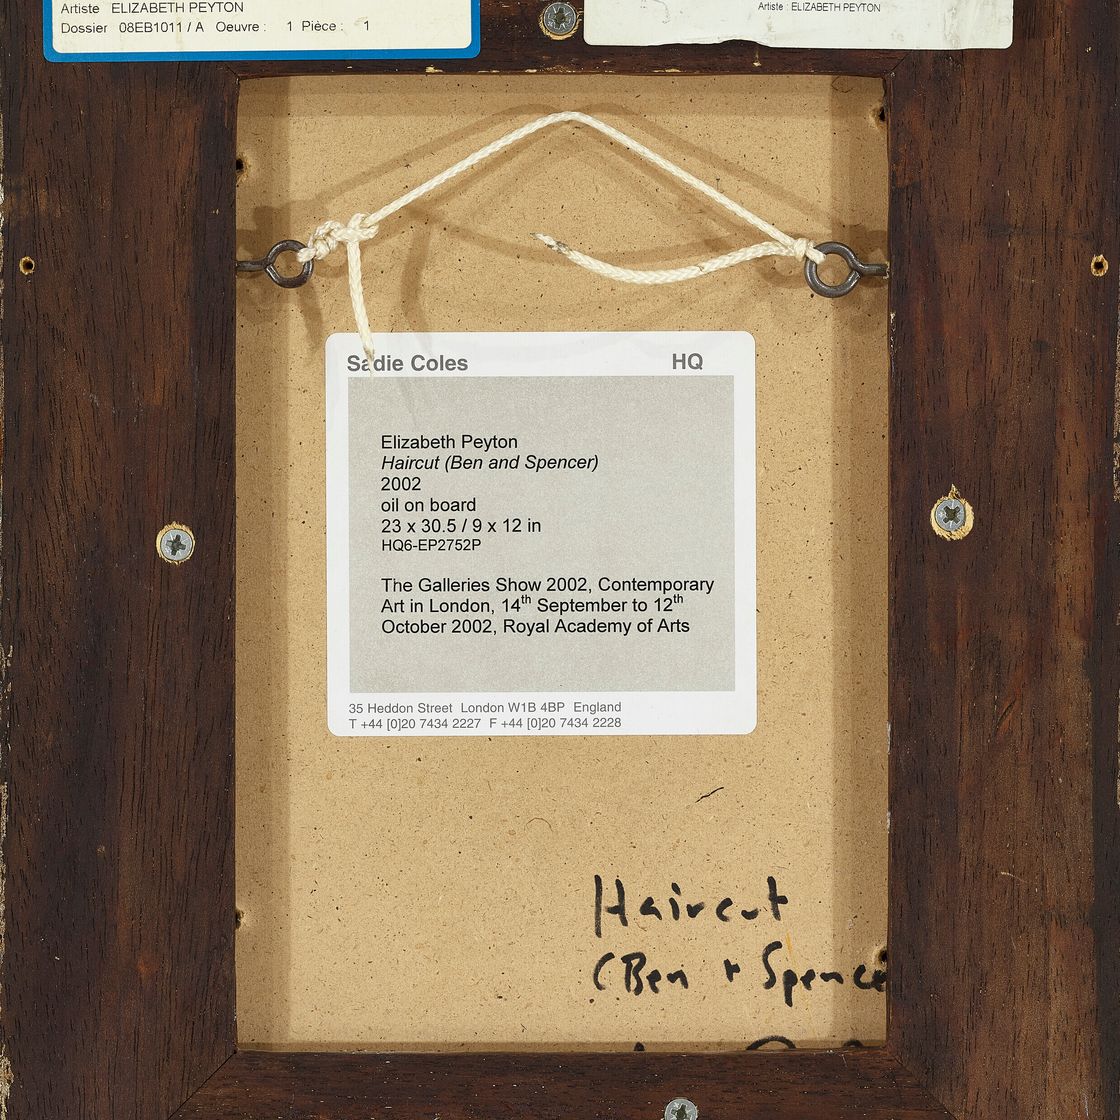 Artiste ELIZABETH PEYTON
Dossier 08EB1011 / A Oeuvre : 1 Pièce : 1
Artiste : ELIZABETH PEYTON
Sadie Coles HQ
Elizabeth Peyton
Haircut (Ben and Spencer)
2002
oil on board
23 x 30.5 / 9 x 12 in
HQ6-EP2752P
The Galleries Show 2002, Contemporary
Art in London, 14th September to 12th
October 2002, Royal Academy of Arts
35 Heddon Street London W1B 4BP England
T +44 [0]20 7434 2227 F +44 [0]20 7434 2228
Haircut
(Ben + Spence